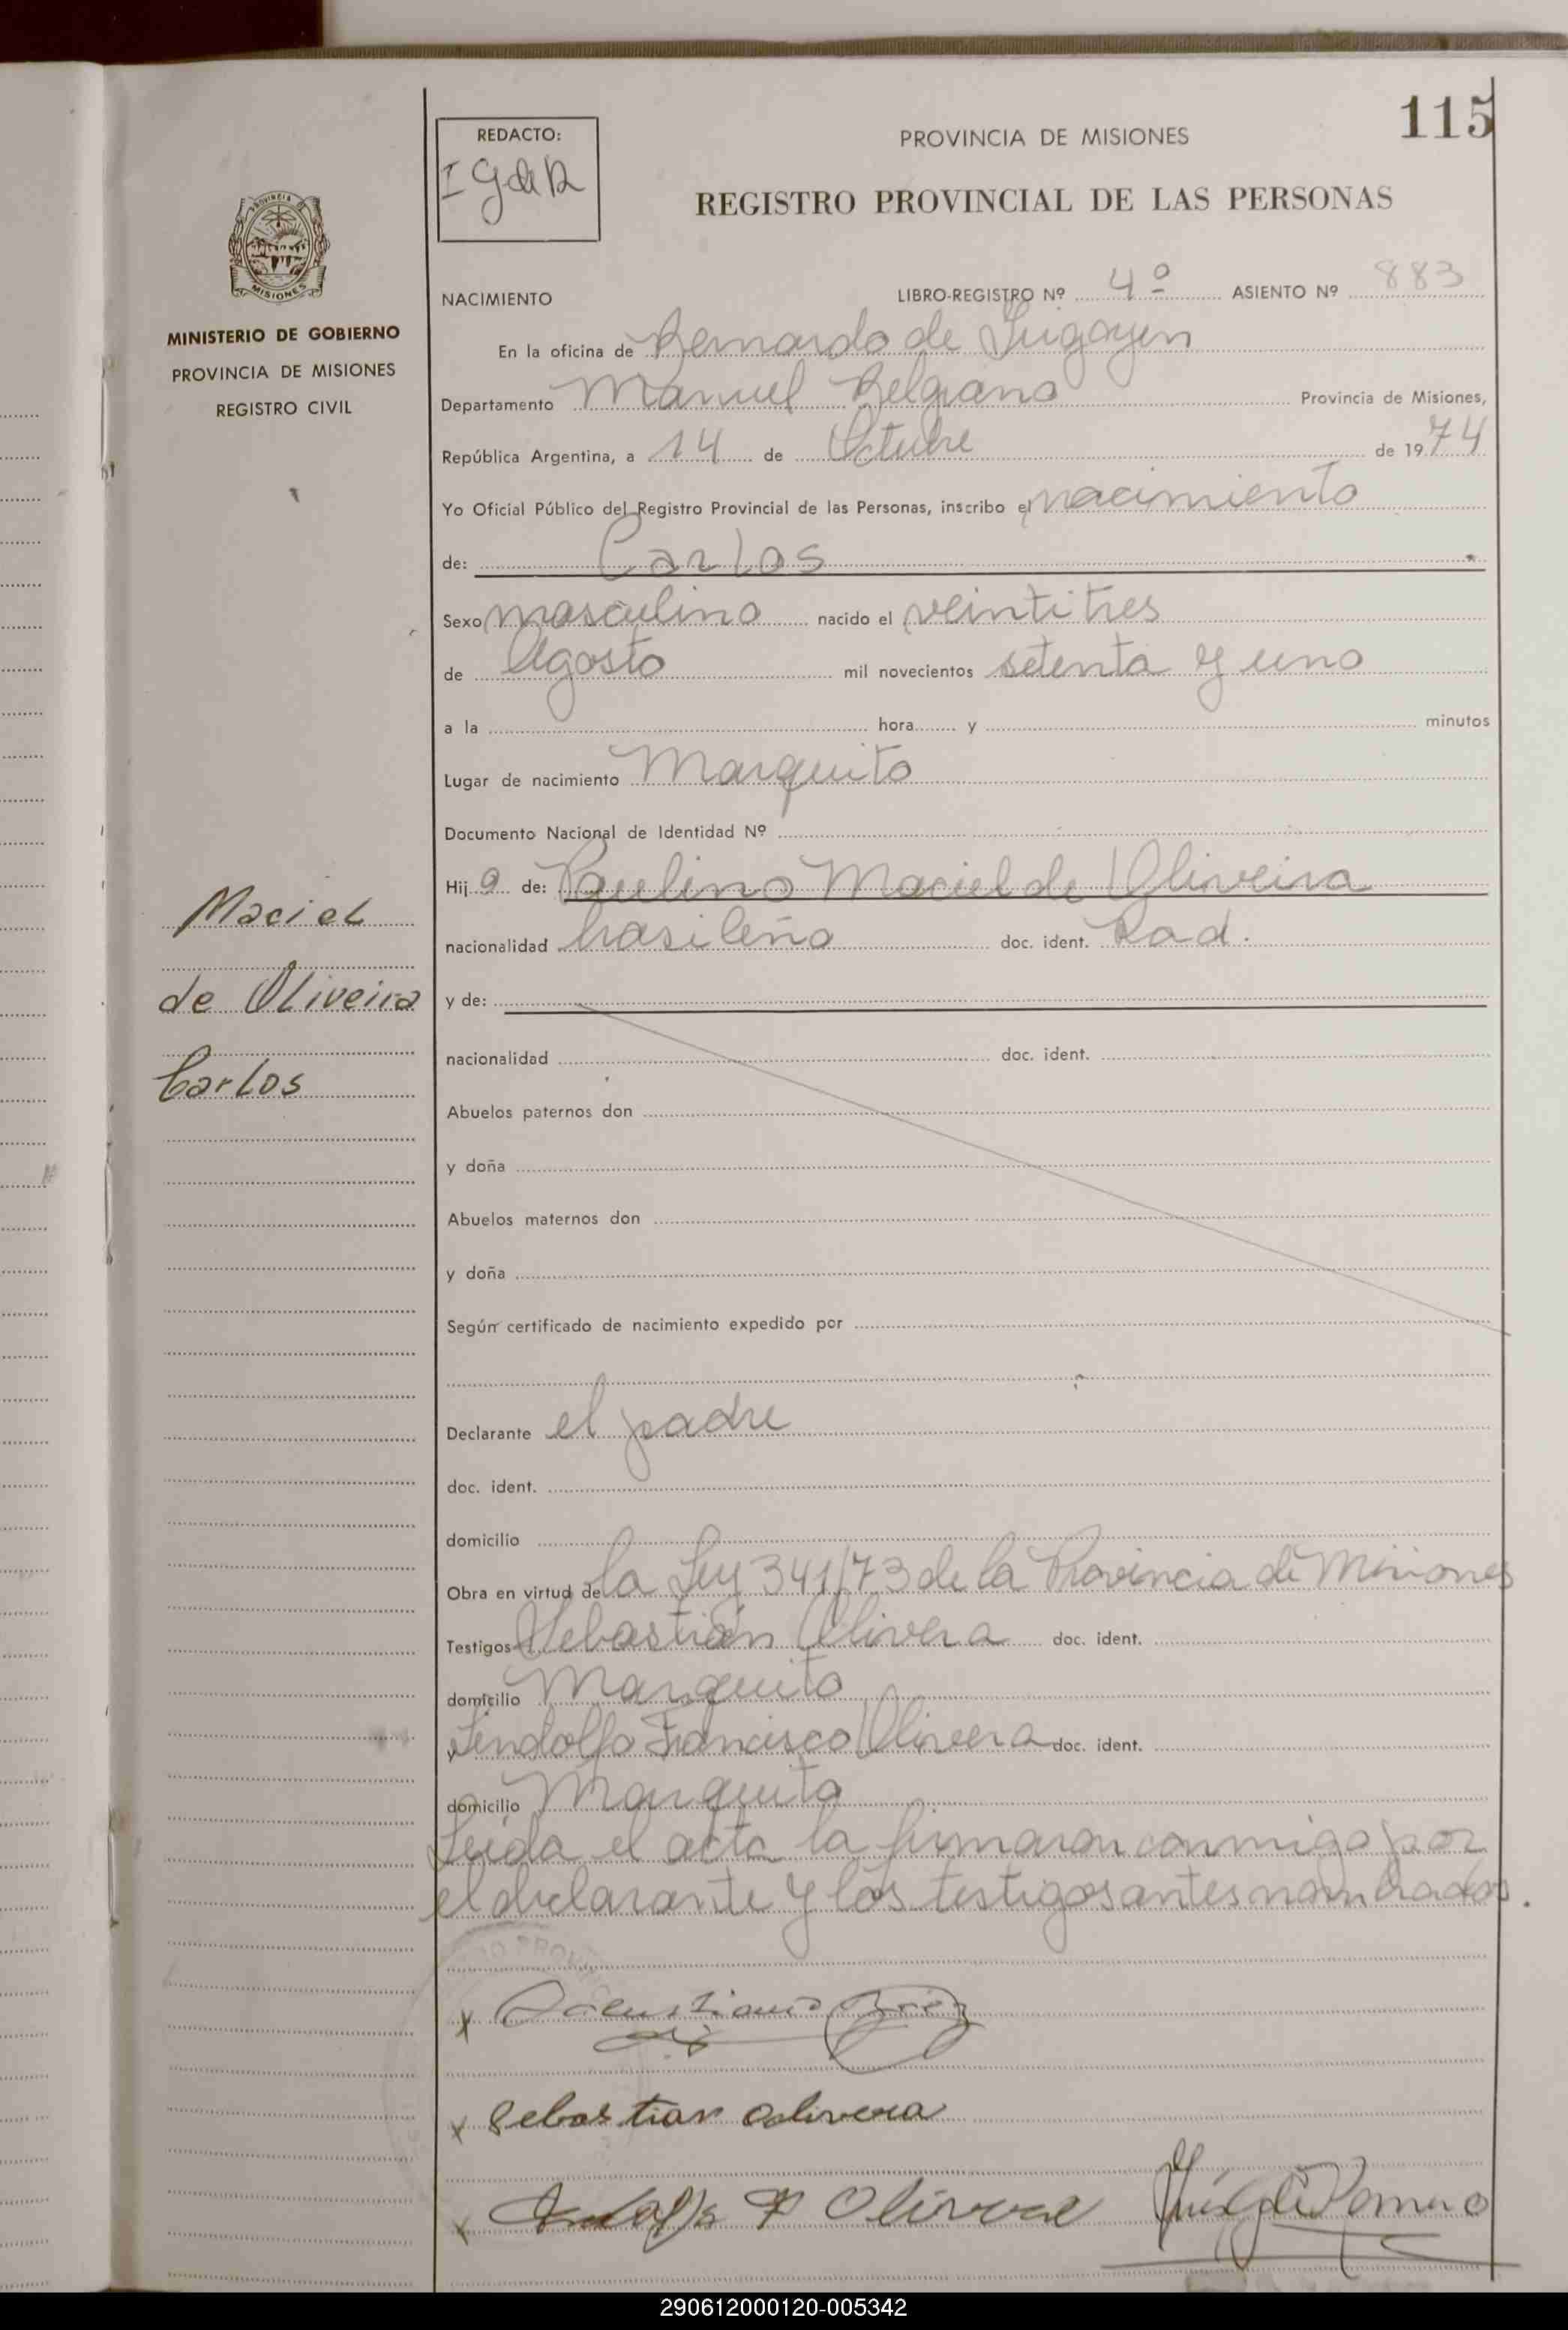 115
REDACTO:
I G de R
PROVINCIA DE MISIONES
REGISTRO PROVINCIAL DE LAS PERSONAS
MISIONES
MINISTERIO DE GOBIERNO
PROVINCIA DE MISIONES
REGISTRO CIVIL
NACIMIENTO LIBRO-REGISTRO Nº 4º ASIENTO Nº 883
En la oficina de Bernardo de Irigoyen
Departamento Manuel Belgrano Provincia de Misiones,
República Argentina, a 14 de Octubre de 1974
Yo Oficial Público del Registro Provincial de las Personas, inscribo el nacimiento
de: Carlos
Sexo masculino nacido el veintitres
de Agosto mil novecientos setenta y uno
a la hora y minutos
Lugar de nacimiento Marquito
Documento Nacional de Identidad Nº
Hijo de: Paulino Maciel de Oliveira
nacionalidad brasileño doc. ident. Rad.
Maciel
de Oliveira
Carlos
y de:
nacionalidad doc. ident.
Abuelos paternos don
y doña
Abuelos maternos don
y doña
Según certificado de nacimiento expedido por
Declarante el padre
doc. ident.
domicilio
Obra en virtud de la Ley 341/73 de la Provincia de Misiones
Testigos Sebastián Olivera doc. ident.
domicilio Marquito
Lindolfo Francisco Olivera doc. ident.
domicilio Marquito
Leída el acta la firmaron conmigo por
el declarante y los testigos antes nombrados.
x
x Sebastian Oolivera
x
290612000120-005342